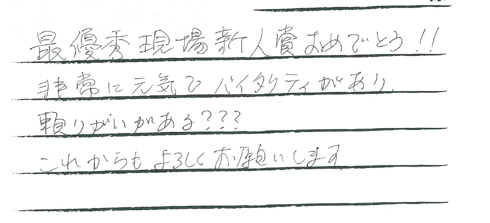 最優秀現場新人賞おめでとう!!
非常に元気でバイタリティがあり
頼りがいがある???
これからもよろしくお願いします